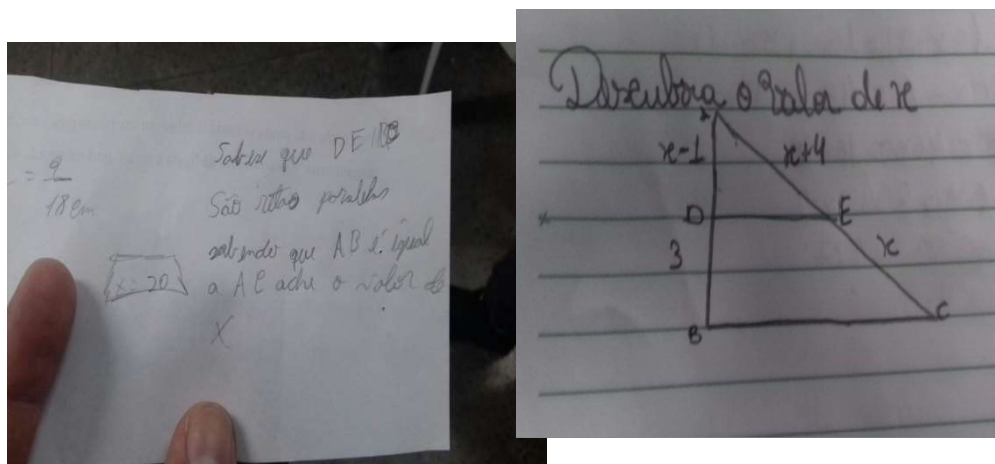 = 9
18 cm
x = 20
Sabese que DE
São retas paralelas
sabendo que AB é igual
a AC ache o valor de
X
Descubra o valor de x
A
x-1
x+4
D
E
3
x
B
C